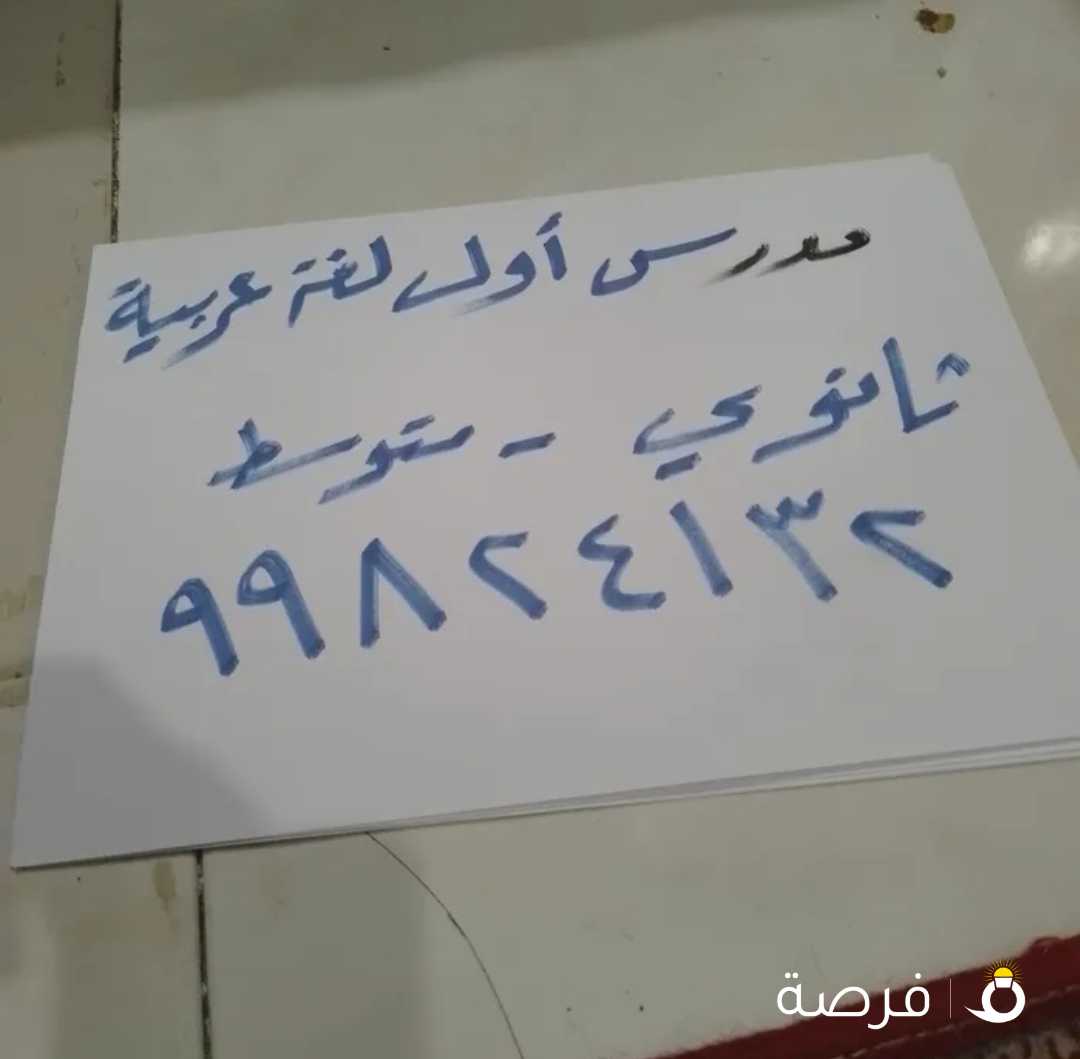 مدرس أول لغة عربية
ثانوي - متوسط
٩٩٨٢٤١٣٢
فرصة